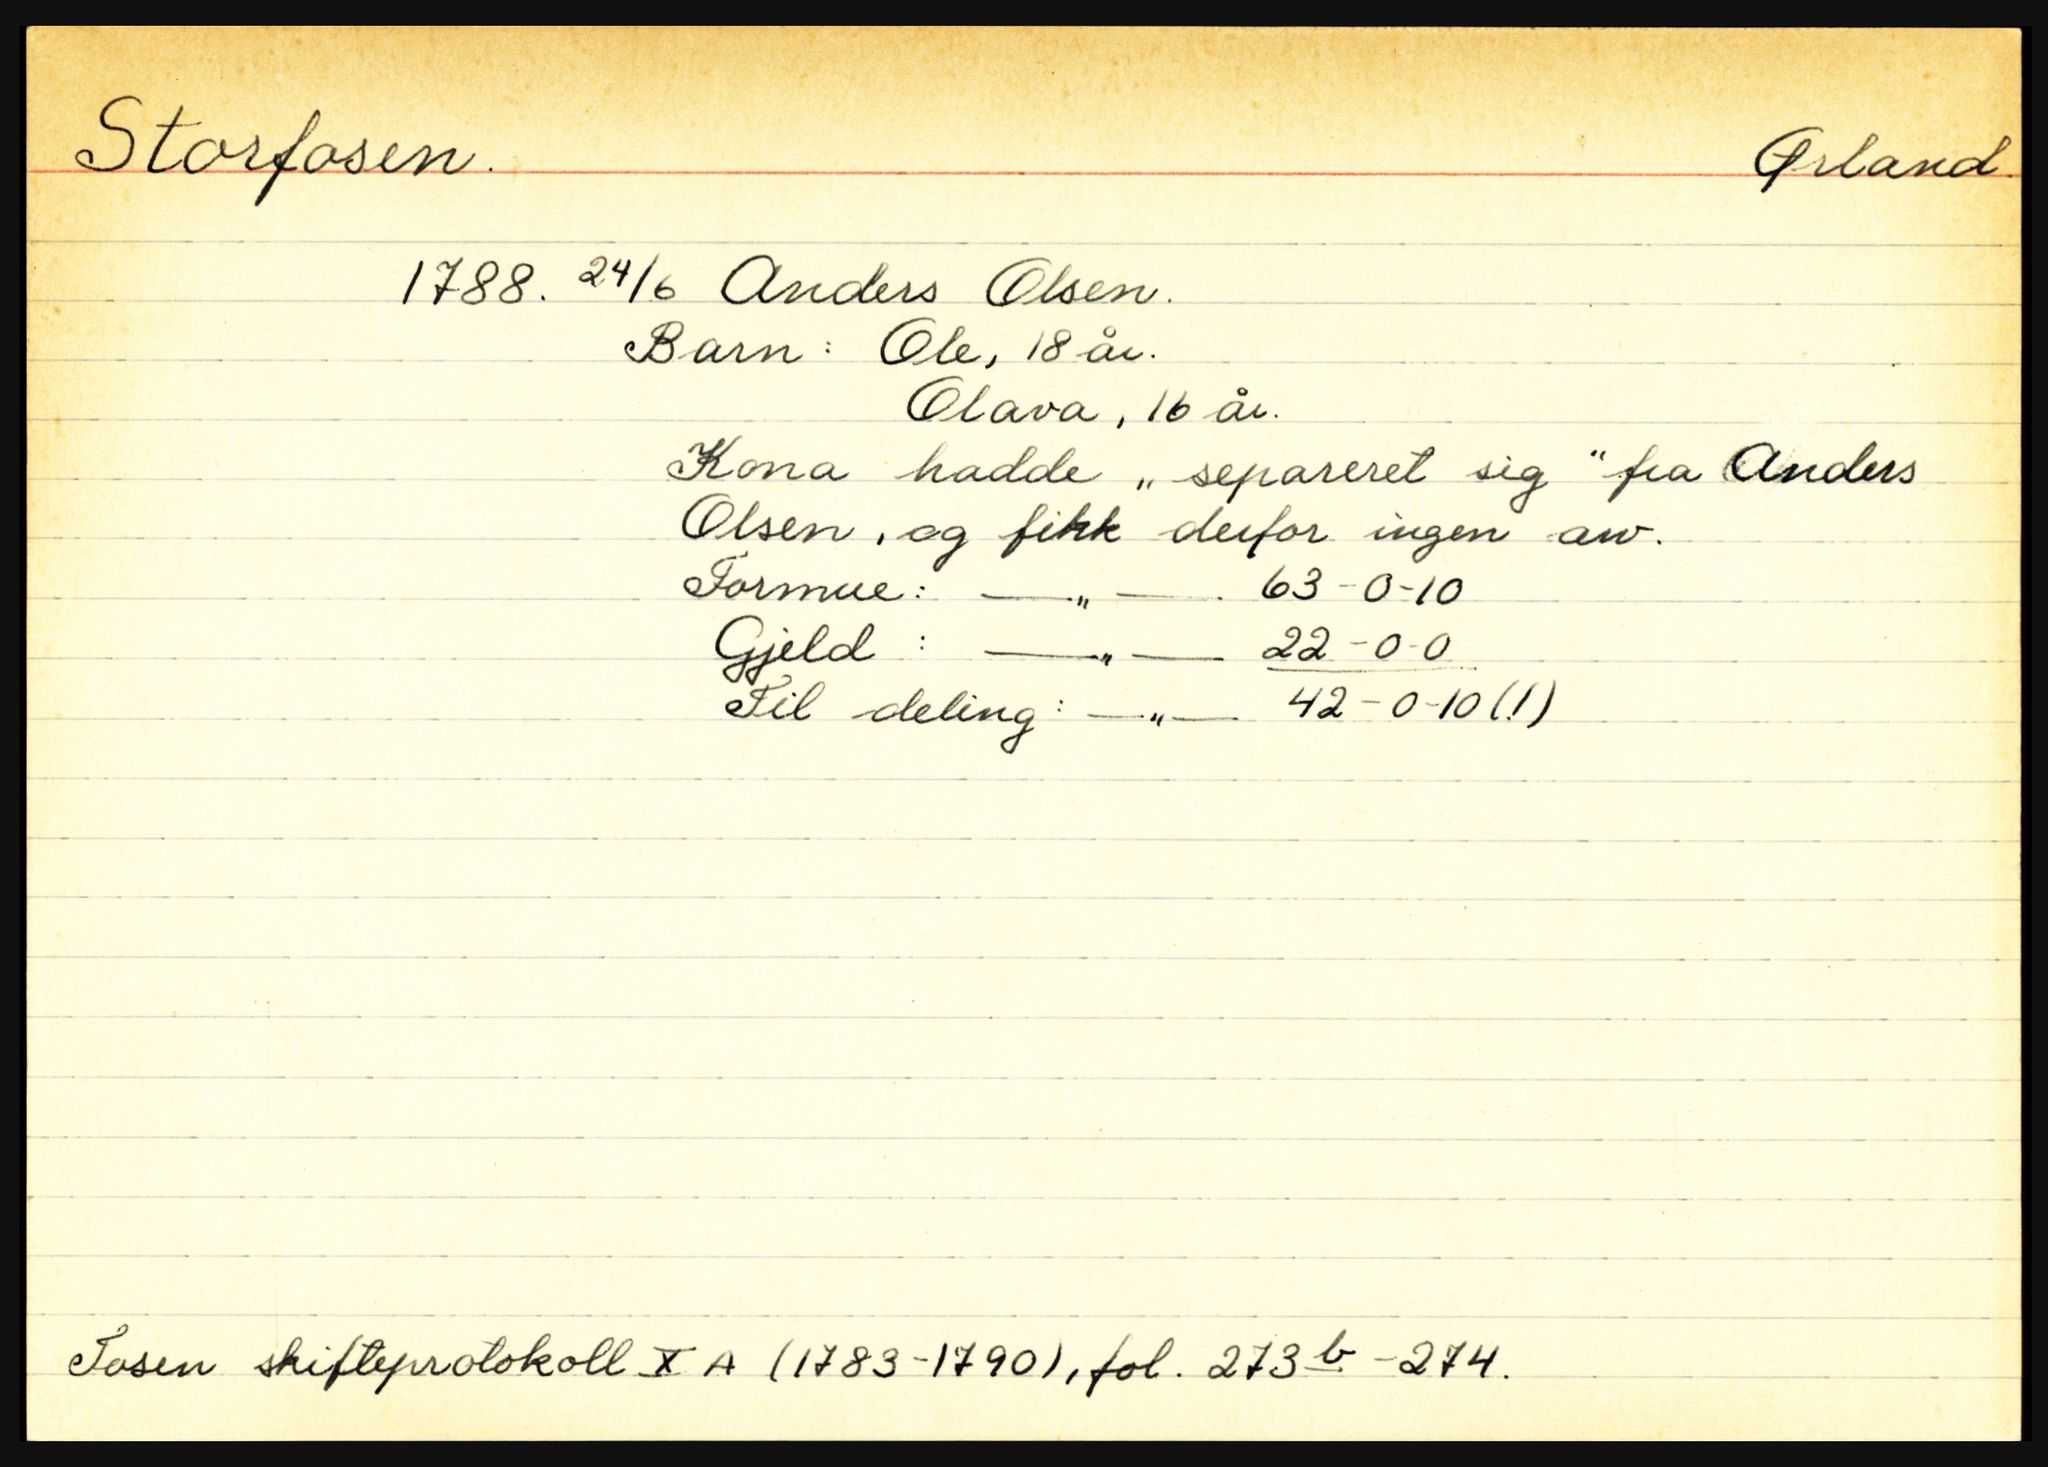 Storfosen. Ørland.
1788. 24/6 Anders Olsen.
Barn: Ole, 18 år.
Olava, 16 år.
Kona hadde „separeret sig" fra Anders
Olsen, og fikk derfor ingen arv.
Formue: —„— 63-0-10
Gjeld: —„— 22-0-0
Til deling: —„— 42-0-10 (!)
Fosen skifteprotokoll X A (1783-1790), fol. 273 b - 274.